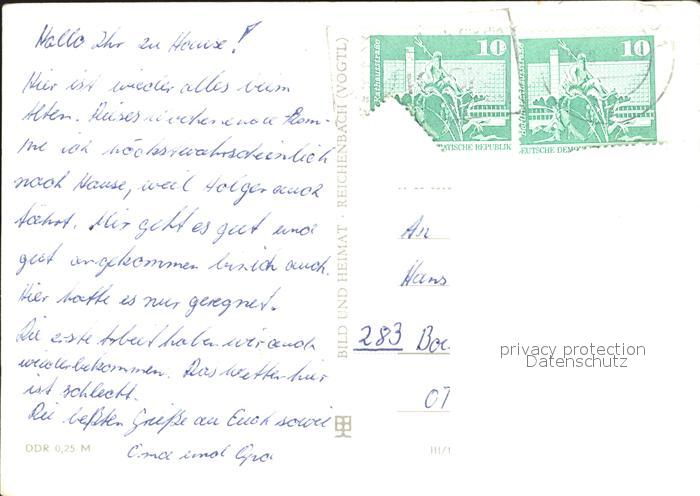 Hallo Ihr zu Hause!
Hier ist wieder alles beim
Alten. Dieses Wochenende kom-
me ich höchstwahrscheinlich
nach Hause, weil Holger auch
fährt. Mir geht es gut und
gut angekommen bin ich auch.
Hier hatte es nur geregnet.
Die erste Arbeit haben wir auch
wiederbekommen. Das Wetter hier
ist schlecht.
Die beßten Grüße an Euch sowie
Oma und Opa
DDR 0,25 M
BILD UND HEIMAT · REICHENBACH (VOGTL)
Rathausstraße
10
ATISCHE REPUBLIK
10
EUTSCHE DEMO
An
Hans
283 Boi
OT
III/1
privacy protection
Datenschutz